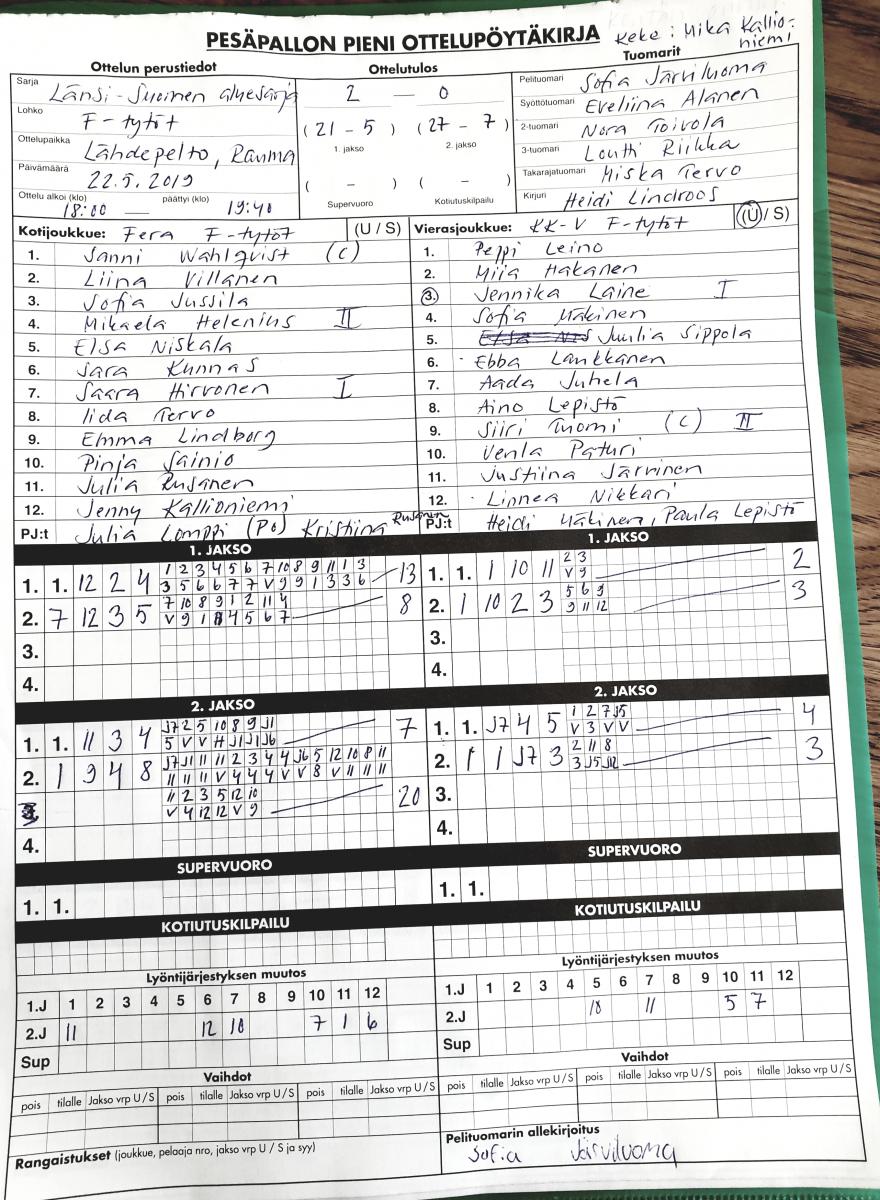 PESÄPALLON PIENI OTTELUPÖYTÄKIRJA Keke: Mika Kallio-
niemi
Ottelun perustiedot Ottelutulos Tuomarit
Sarja Länsi-Suomen aluesarja 2 — 0 Pelituomari Sofia Järviluoma
Lohko F-tytöt (21 - 5) (27 - 7) Syöttötuomari Eveliina Alanen
1. jakso 2. jakso 2-tuomari Nora Toivola
Ottelupaikka Lähdepelto, Rauma 3-tuomari Loutti Riikka
Päivämäärä 22.5.2019 ( - ) ( - ) Takarajatuomari Miska Tervo
Ottelu alkoi (klo) 18:00 — päättyi (klo) 19:40 Supervuoro Kotiutuskilpailu Kirjuri Heidi Lindroos
Kotijoukkue: Fera F-tytöt (U / S) Vierasjoukkue: KK-V F-tytöt (U / S)
1. Sanni Wahlqvist (C) 1. Peppi Leino
2. Liina Villanen 2. Miia Hakanen
3. Sofia Jussila 3. Jennika Laine I
4. Mikaela Helenius II 4. Sofia Mäkinen
5. Elsa Niskala 5. Juulia Sippola
6. Sara Kunnas 6. Ebba Lankkanen
7. Saara Hirvonen I 7. Aada Juhela
8. Iida Tervo 8. Aino Lepistö
9. Emma Lindborg 9. Siiri Tuomi (C) II
10. Pinja Sainio 10. Venla Paturi
11. Julia Rusanen 11. Justiina Järvinen
12. Jenny Kallioniemi 12. Linnea Nikkari
PJ:t Julia Lomppi (PO) Kristiina Rusanen PJ:t Heidi Mäkinen, Paula Lepistö
1. JAKSO 1. JAKSO
1 2 3 4 5 6 7 10 8 9 11 1 3 2 3
1. 1. 12 2 4 3 5 6 6 7 7 V 9 9 1 3 3 6 13 1. 1. 1 10 11 V 9 2
7 10 8 9 1 2 11 4 5 6 9
2. 7 12 3 5 V 9 1 11 4 5 6 7 8 2. 1 10 2 3 9 11 12 3
3. 3.
4. 4.
2. JAKSO 2. JAKSO
J7 2 5 10 8 9 J1 1 2 7 J5
1. 1. 11 3 4 5 V V H J1 J1 J6 7 1. 1. J7 4 5 V 3 V V 4
J7 J1 11 11 2 3 4 4 J6 5 12 10 8 11 2 11 8
2. 1 9 4 8 11 11 11 V 4 4 4 V V 8 V 11 11 11 2. 1 1 J7 3 3 J5 J12 3
11 2 3 5 12 10
V 4 12 12 V 9 20 3.
4. 4.
SUPERVUORO SUPERVUORO
1. 1. 1. 1.
KOTIUTUSKILPAILU KOTIUTUSKILPAILU
Lyöntijärjestyksen muutos Lyöntijärjestyksen muutos
1.J 1 2 3 4 5 6 7 8 9 10 11 12 1.J 1 2 3 4 5 6 7 8 9 10 11 12
2.J 11 12 10 7 1 6 2.J 10 11 5 7
Sup Sup
Vaihdot Vaihdot
pois tilalle Jakso vrp U / S pois tilalle Jakso vrp U / S pois tilalle Jakso vrp U / S pois tilalle Jakso vrp U / S pois tilalle Jakso vrp U / S pois tilalle Jakso vrp U / S
Rangaistukset (joukkue, pelaaja nro, jakso vrp U / S ja syy) Pelituomarin allekirjoitus
Sofia Järviluoma